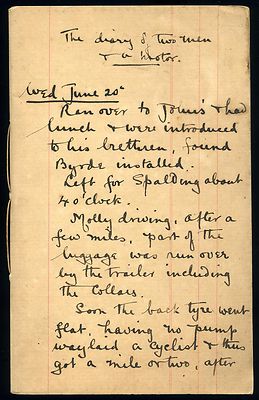 The diary of two men
& a Motor.
Wed June 20th
Ran over to John's & had
lunch & were introduced
to his brethren, found
Byrde installed.
Left for Spalding about
4 o'clock.
Molly driving, after a
few miles, part of the
luggage was run over
by the trailer including
the collars.
Soon the back tyre went
flat, having no pump
waylaid a cyclist & thus
got a mile or two, after